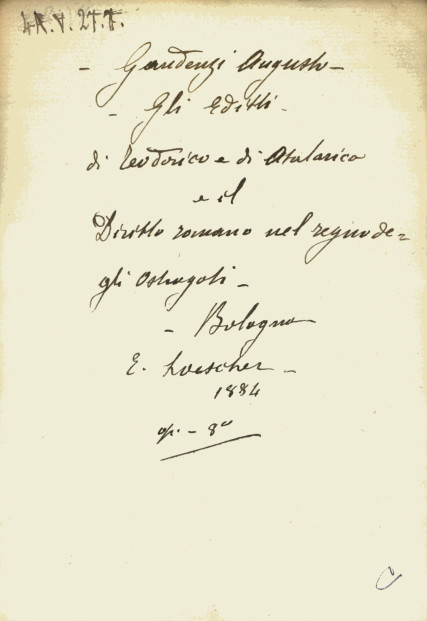 4 R. V. 27. 7.
- Gaudenzi Augusto -
- Gli Editti -
di Teodorico e di Atalarico
e il
Diritto romano nel regno de=
gli Ostrogoti -
- Bologna
E. Loescher -
1884
op. - 8°